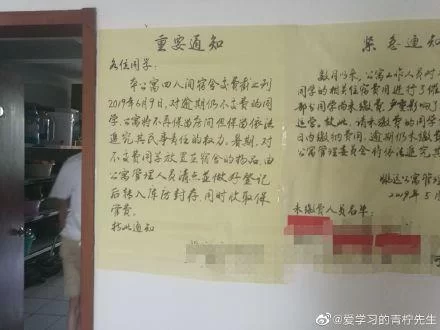 重要通知
各位同学:
本公寓四人间宿舍交费截止到
2019年6月9日,对逾期仍不交费的同
学,公寓将不再保留房间但保留依法
追究其民事责任的权力。暑期,对
不交费同学放置至宿舍的物品,由
公寓管理人员清点并做好登记
后转入库房封存,同时收取保
管费。
特此通知
紧急通知
数月以来,公寓工作人员对
同学的相关住宿费用进行了催
部分同学尚未缴费,严重影响
运营。故此,请未缴费的同学
日内缴纳费用,逾期仍未缴费
公寓管理委员会将依法追究其
公寓管理
2019年5月
未缴费人员名单:
@爱学习的青柠先生